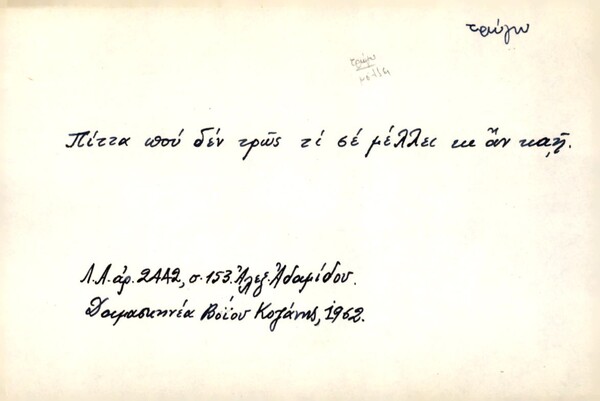 τρώγω
τρώγω
μέλλει
Πίττα πού δέν τρῶς τί σέ μέλλει κι ἄν καῇ.
Λ.Α. ἀρ. 2442, σ. 153. Ἀλεξ. Ἀδαμίδου.
Δαμασκηνέα Βοΐου Κοζάνης, 1962.